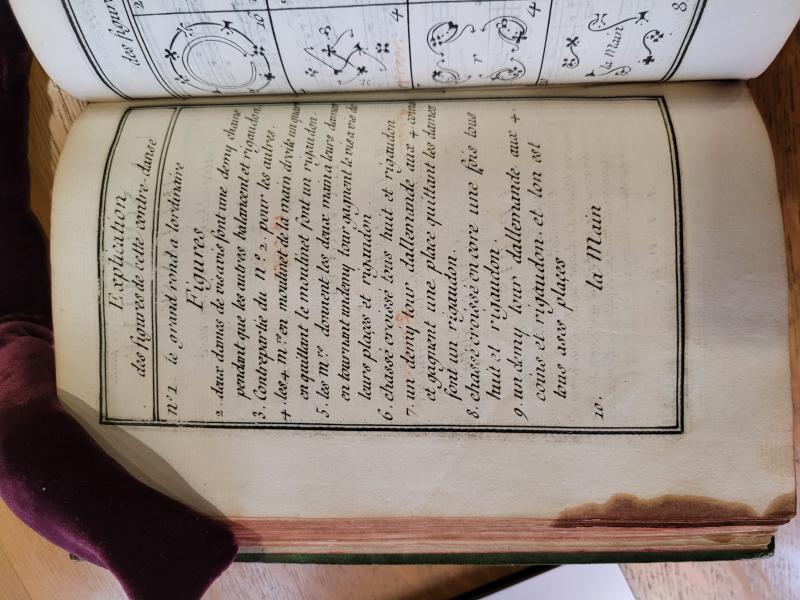 des figures
10
4
4
la Main
8
Explication
des figures de cette contre-danse
n.º 1 le grand rond a lordinaire
Figures
2. deux dames de visavis font une demy chaine
pendant que les autres balancent et rigaudon.
3. Contrepartie du n.º 2 pour les autres.
4. les 4 m.rs en moulinet de la main droite un quar
en quillant le moulinet font un rigaudon.
5. les m.rs donnent les deux main a leurs dames
en tournant un demy tour gagnent le vis a vis de
leurs places et rigaudon
6. chassé croissé tous huit et rigaudon
7. un demy tour dallemande aux 4 coins
et gagnent une place quittant les dames
font un rigaudon.
8. chassé croissé encore une fois tous
huit et rigaudon.
9. un demy tour dallemande aux 4.
coins et rigaudon. et lon est
tous a ses places
10. la Main